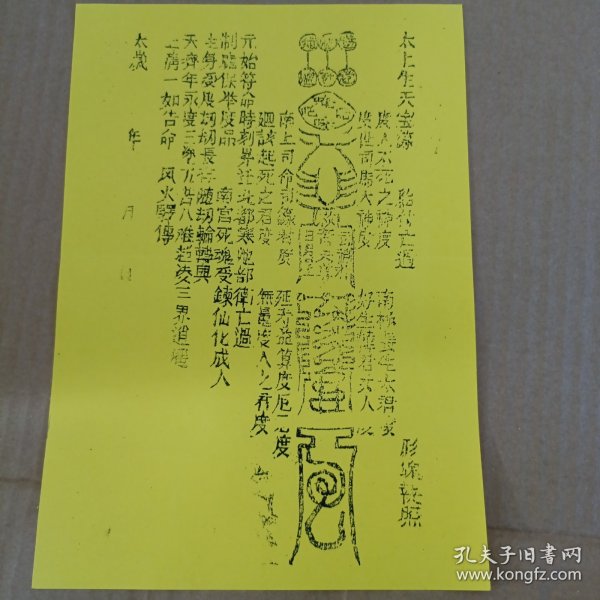 太上生天宝箓 給付亡過
度人不死之神度 南極長生大君度
度世司馬大神度 好生韓君丈人度
南上司命司錄 度 延寿益算度厄 度
迴骸起死之君度 無量度人之君度
元始符命時刻昇迁北都寒池部衛
制魔保举度品 南宮死魂受鍊仙化成人
生身受度劫劫長存随劫輪轉與
天齊年永度三塗五苦八难超凌三界逍遥
上清一如告命 风火驛傳
太歲 年 月 日
孔夫子旧书网
www.kongfz.com